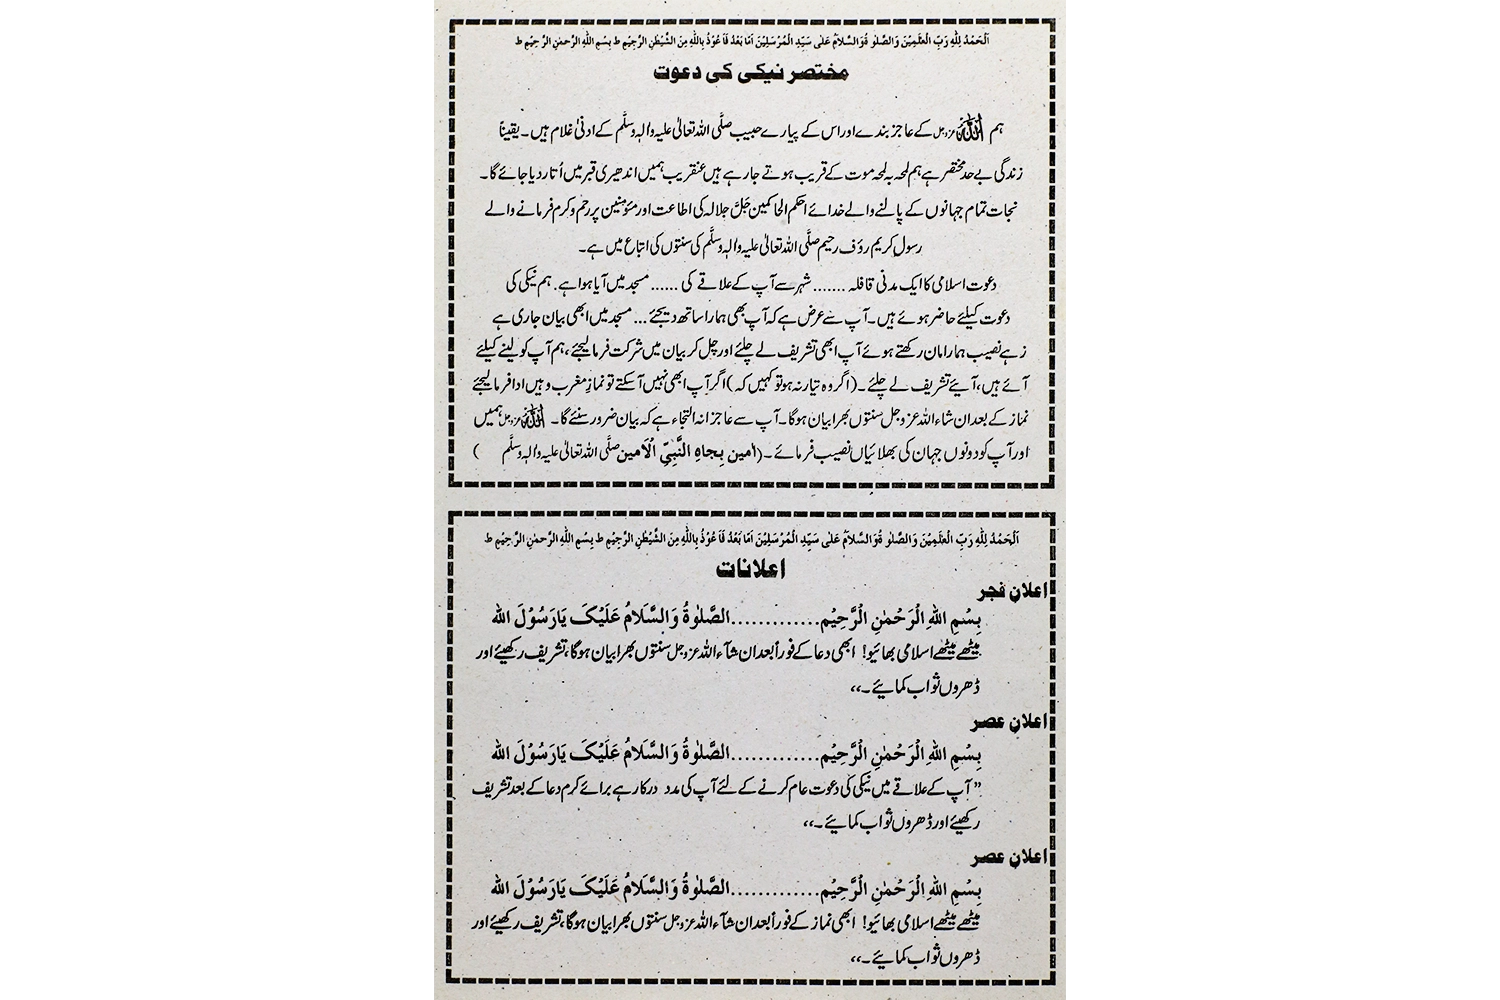 اَلْحَمْدُ لِلّٰہِ رَبِّ الْعٰلَمِیْنَ وَالصَّلٰوۃُ وَالسَّلَامُ عَلٰی سَیِّدِ الْمُرْسَلِیْنَ اَمَّا بَعْدُ فَاَعُوْذُ بِاللّٰہِ مِنَ الشَّیْطٰنِ الرَّجِیْمِ ط بِسْمِ اللّٰہِ الرَّحْمٰنِ الرَّحِیْمِ ط
مختصر نیکی کی دعوت
ہم اللہ عزوجل کے عاجز بندے اور اس کے پیارے حبیب صلَّی اللہ تعالیٰ علیہ واٰلہٖ وسلَّم کے ادنیٰ غلام ہیں۔ یقیناً
زندگی بے حد مختصر ہے ہم لمحہ بہ لمحہ موت کے قریب ہوتے جا رہے ہیں عنقریب ہمیں اندھیری قبر میں اُتار دیا جائے گا۔
نجات تمام جہانوں کے پالنے والے خدائے احکم الحاکمین جَلَّ جلالہ کی اطاعت اور مؤمنین پر رحم و کرم فرمانے والے
رسول کریم رؤف رحیم صلَّی اللہ تعالیٰ علیہ واٰلہٖ وسلَّم کی سنتوں کی اتباع میں ہے۔
دعوت اسلامی کا ایک مدنی قافلہ ....... شہر سے آپ کے علاقے کی ...... مسجد میں آیا ہوا ہے۔ ہم نیکی کی
دعوت کیلئے حاضر ہوئے ہیں۔ آپ سے عرض ہے کہ آپ بھی ہمارا ساتھ دیجئے ... مسجد میں ابھی بیان جاری ہے
زہے نصیب ہمارا مان رکھتے ہوئے آپ ابھی تشریف لے چلئے اور چل کر بیان میں شرکت فرما لیجئے، ہم آپ کو لینے کیلئے
آئے ہیں، آیئے تشریف لے چلئے۔ (اگر وہ تیار نہ ہو تو کہیں کہ) اگر آپ ابھی نہیں آسکتے تو نمازِ مغرب وہیں ادا فرما لیجئے
نماز کے بعد ان شاء اللہ عزوجل سنتوں بھرا بیان ہوگا۔ آپ سے عاجزانہ التجاء ہے کہ بیان ضرور سنئے گا۔ اللہ عزوجل ہمیں
اور آپ کو دونوں جہان کی بھلائیاں نصیب فرمائے۔ (اٰمین بِجاہِ النَّبِیِّ الْاَمین صلَّی اللہ تعالیٰ علیہ واٰلہٖ وسلَّم )
اَلْحَمْدُ لِلّٰہِ رَبِّ الْعٰلَمِیْنَ وَالصَّلٰوۃُ وَالسَّلَامُ عَلٰی سَیِّدِ الْمُرْسَلِیْنَ اَمَّا بَعْدُ فَاَعُوْذُ بِاللّٰہِ مِنَ الشَّیْطٰنِ الرَّجِیْمِ ط بِسْمِ اللّٰہِ الرَّحْمٰنِ الرَّحِیْمِ ط
اعلانات
اعلانِ فجر
بِسْمِ اللّٰہِ الْرَحْمٰنِ الْرَّحِیْم.............الصَّلٰوۃُ وَالسَّلَامُ عَلَیْکَ یَارَسُوْلَ اللّٰہ
میٹھے میٹھے اسلامی بھائیو! ابھی دعا کے فوراً بعد ان شآء اللہ عزوجل سنتوں بھرا بیان ہوگا، تشریف رکھیئے اور
ڈھروں ثواب کمایئے۔،،
اعلانِ عصر
بِسْمِ اللّٰہِ الْرَحْمٰنِ الْرَّحِیْم.............الصَّلٰوۃُ وَالسَّلَامُ عَلَیْکَ یَارَسُوْلَ اللّٰہ
” آپ کے علاقے میں نیکی کی دعوت عام کرنے کے لئے آپ کی مدد درکار ہے برائے کرم دعا کے بعد تشریف
رکھیئے اور ڈھروں ثواب کمایئے۔،،
اعلانِ عصر
بِسْمِ اللّٰہِ الْرَحْمٰنِ الْرَّحِیْم.............الصَّلٰوۃُ وَالسَّلَامُ عَلَیْکَ یَارَسُوْلَ اللّٰہ
میٹھے میٹھے اسلامی بھائیو! ابھی نماز کے فوراً بعد ان شآء اللہ عزوجل سنتوں بھرا بیان ہوگا، تشریف رکھیئے اور
ڈھروں ثواب کمایئے۔،،